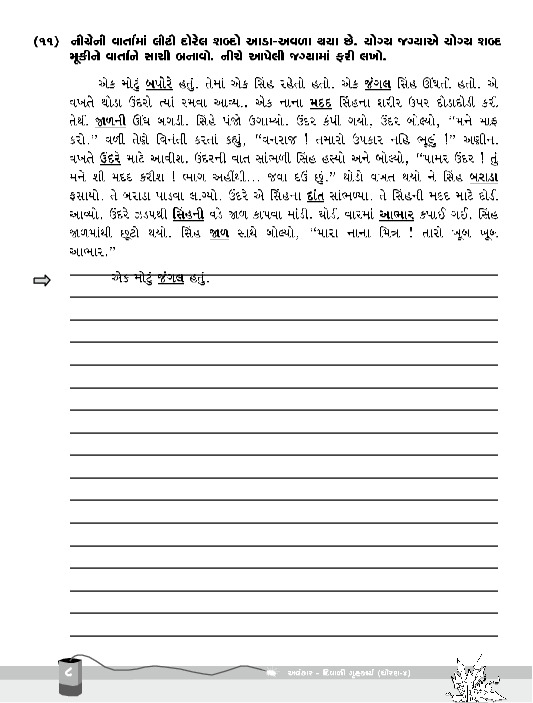 (૧૧) નીચેની વાર્તામાં લીટી દોરેલ શબ્દો આડા-અવળા થયા છે. યોગ્ય જગ્યાએ યોગ્ય શબ્દ
મૂકીને વાર્તાને સાચી બનાવો. નીચે આપેલી જગ્યામાં ફરી લખો.
એક મોટું બપોરે હતું. તેમાં એક સિંહ રહેતો હતો. એક જંગલ સિંહ ઊંઘતો હતો. એ
વખતે થોડા ઉંદરો ત્યાં રમવા આવ્યા. એક નાના મદદ સિંહના શરીર ઉપર દોડાદોડી કરી.
તેથી જાળની ઊંઘ બગડી. સિંહે પંજો ઉગામ્યો. ઉંદર કંપી ગયો, ઉંદર બોલ્યો, “મને માફ
કરો.” વળી તેણે વિનંતી કરતાં કહ્યું, “વનરાજ ! તમારો ઉપકાર નહિ ભૂલું !” અણીના
વખતે ઉંદરે માટે આવીશ. ઉંદરની વાત સાંભળી સિંહ હસ્યો અને બોલ્યો, “પામર ઉંદર ! તું
મને શી મદદ કરીશ ! ભાગ અહીંથી... જવા દઉં છું.” થોડો વખત થયો ને સિંહ બરાડા
ફસાયો. તે બરાડા પાડવા લાગ્યો. ઉંદરે એ સિંહના દાંત સાંભળ્યા. તે સિંહની મદદ માટે દોડી
આવ્યો. ઉંદરે ઝડપથી સિંહની વડે જાળ કાપવા માંડી. થોડી વારમાં આભાર કપાઈ ગઈ. સિંહ
જાળમાંથી છૂટો થયો. સિંહ જાળ સાથે બોલ્યો, “મારા નાના મિત્ર ! તારો ખૂબ ખૂબ
આભાર.”
એક મોટું જંગલ હતું.
૮
અવતાર - દિવાળી ગૃહકાર્ય (ધોરણ-૪)